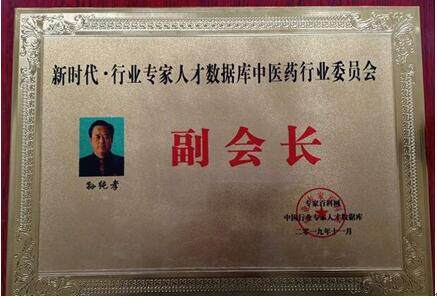 新时代·行业专家人才数据库中医药行业委员会
副会长
孙纯孝
专家百科网
中国行业专家人才数据库
二零一九年十一月